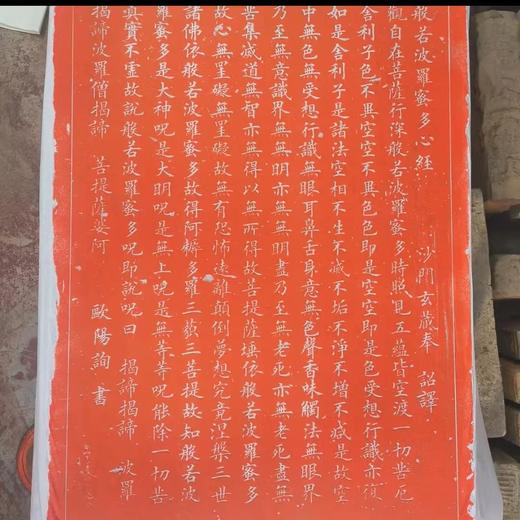 般若波羅蜜多心經 沙門玄奘奉 詔譯
觀自在菩薩行深般若波羅蜜多時照見五蘊皆空渡一切苦厄
舍利子色不異空空不異色色即是空空即是色受想行識亦復
如是舍利子是諸法空相不生不滅不垢不淨不增不減是故空
中無色無受想行識無眼耳鼻舌身意無色聲香味觸法無眼界
乃至無意識界無無明亦無無明盡乃至無老死亦無老死盡無
苦集滅道無智亦無得以無所得故菩提薩埵依般若波羅蜜多
故心無罣礙無罣礙故無有恐怖遠離顛倒夢想究竟涅槃三世
諸佛依般若波羅蜜多故得阿耨多羅三藐三菩提故知般若波
羅蜜多是大神呪是大明呪是無上呪是無等等呪能除一切苦
真實不虛故說般若波羅蜜多呪即說呪曰 揭諦揭諦 波羅
揭諦波羅僧揭諦 菩提薩婆訶
歐陽詢書